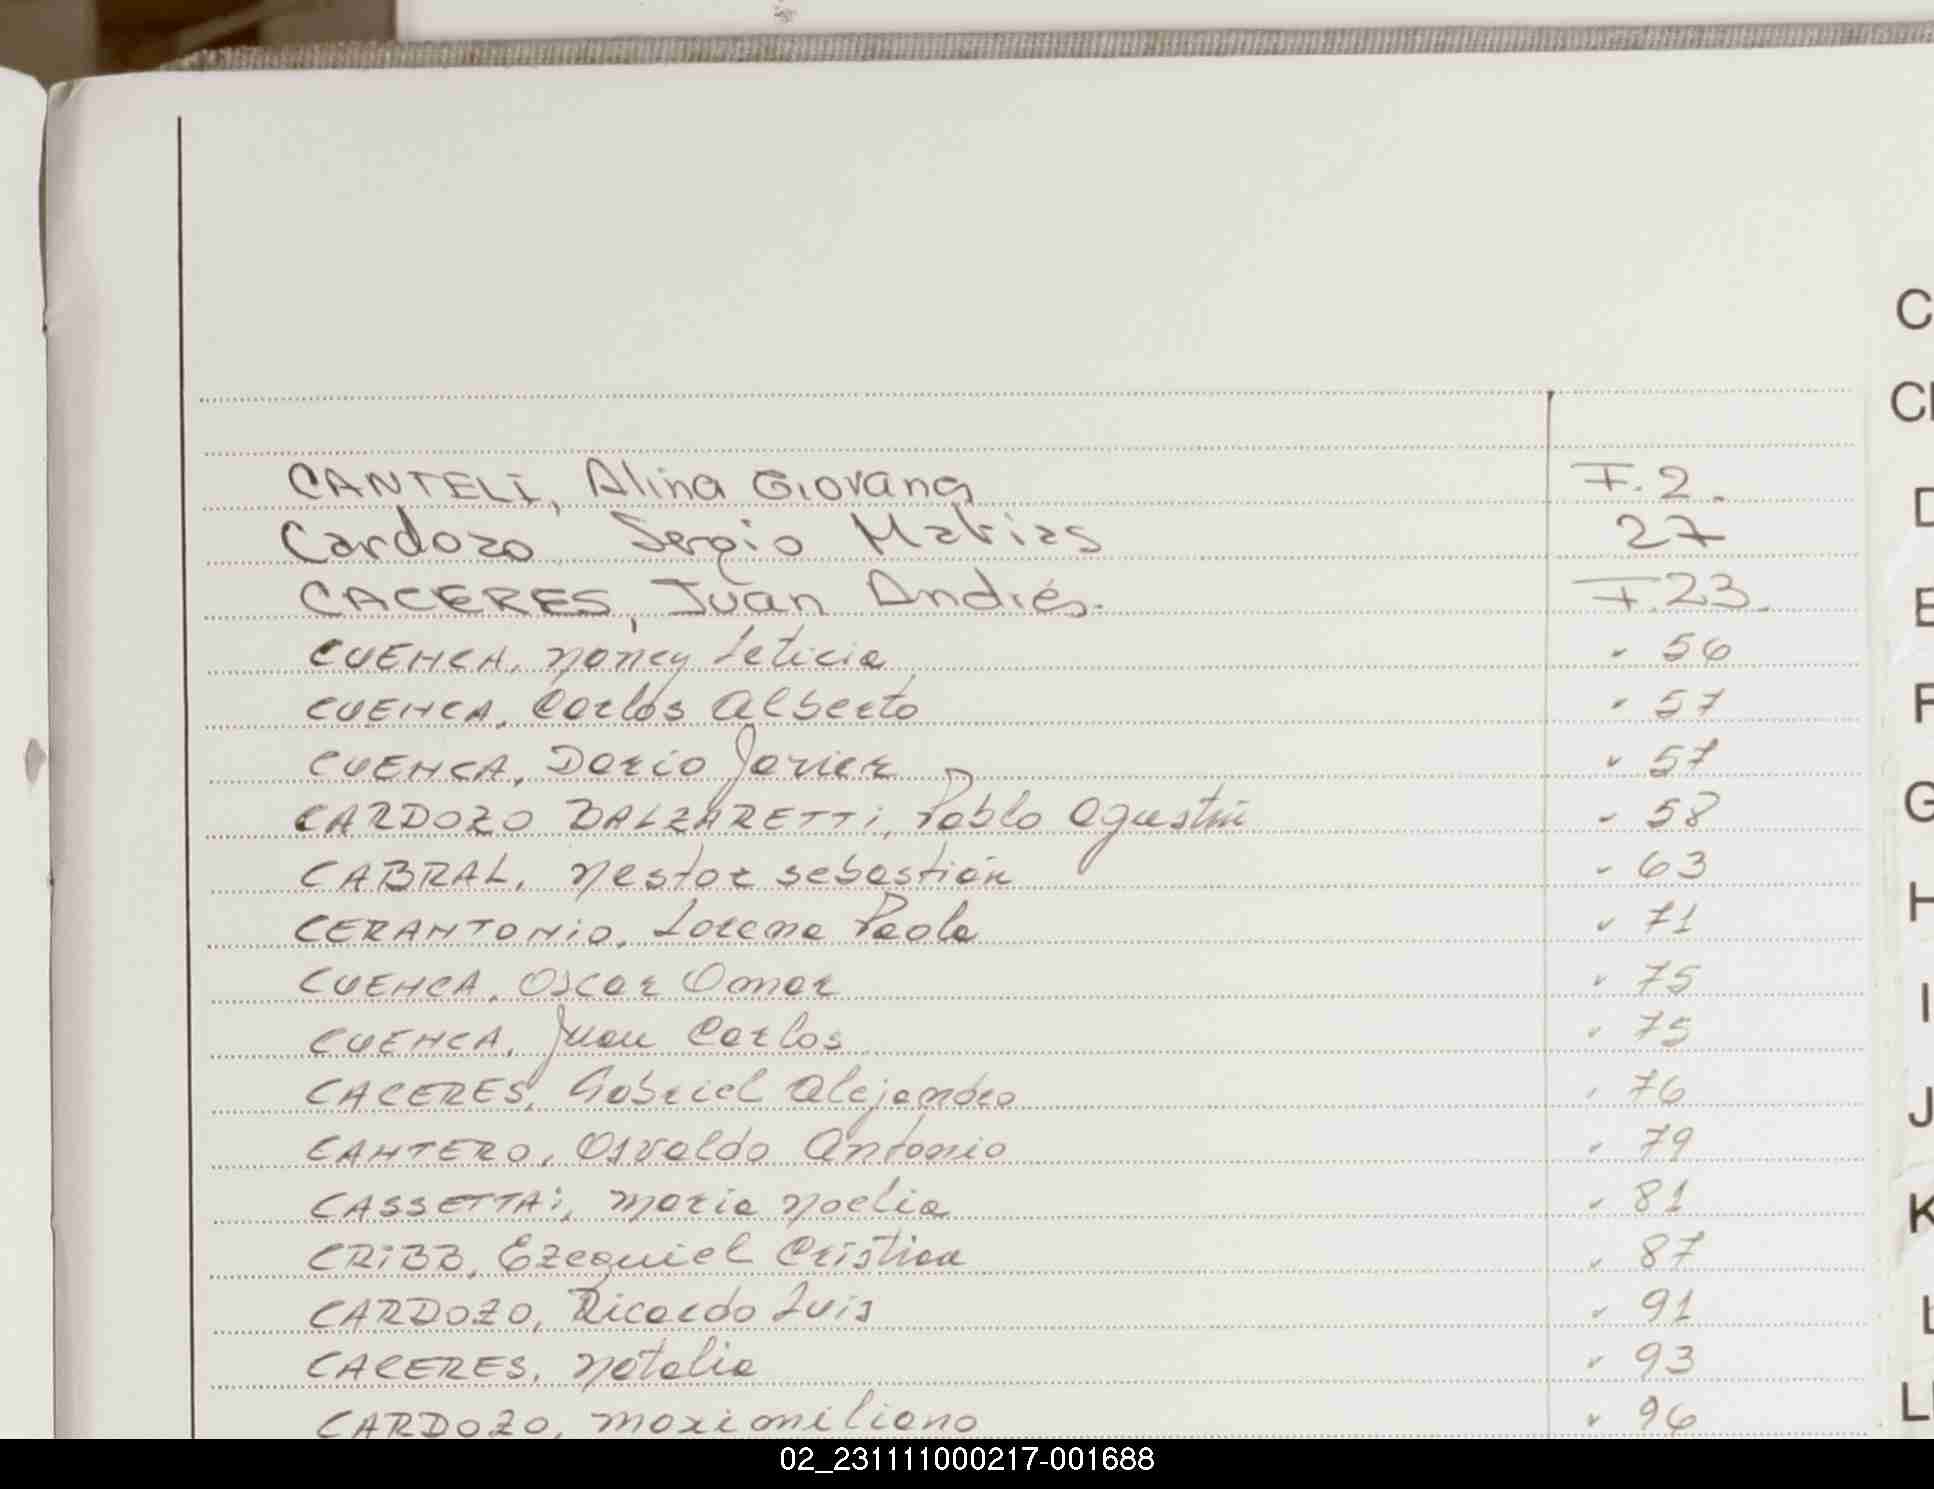 CANTELI, Alina Giovana F. 2.
Cardozo Sergio Matias 27
CACERES, Juan Andrés. F. 23.
CUENCA, Nancy Leticia " 56
CUENCA, Carlos Alberto " 57
CUENCA, Dario Javier " 57
CARDOZO BALZARETTi, Pablo Agustín " 58
CABRAL, Nestor Sebastián " 63
CERANTONiO, Lorena Paola " 71
CUENCA, Oscar Omar " 75
CUENCA, Juan Carlos " 75
CACERES, Gabriel Alejandro " 76
CANTERO, Osvaldo Antonio " 79
CASSETTAi, Maria Noelia " 81
CRiBB, Ezequiel Cristian " 87
CARDOZO, Ricardo Luis " 91
CACERES, Natalia " 93
CARDOZO, Maximiliano " 96
C
D
E
F
G
H
I
J
K
L
02_231111000217-001688